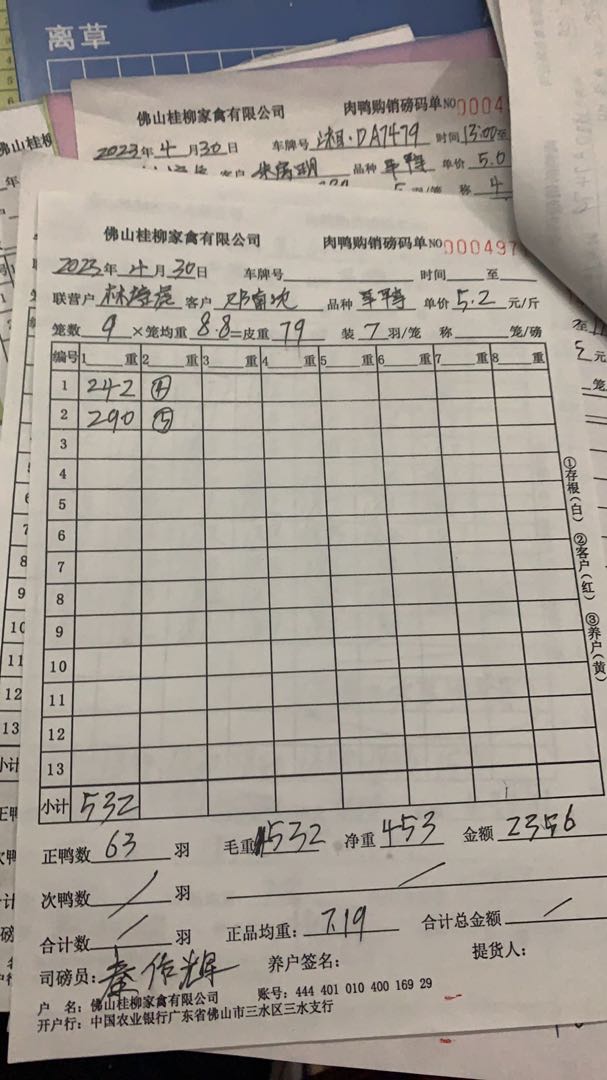 离草
佛山桂柳家禽有限公司 肉鸭购销磅码单 NO 0004
2023年4月30日 车牌号 湘·DA7479 时间 13:00 至
客户 品种 单价 5.0
佛山桂柳
佛山桂柳家禽有限公司 肉鸭购销磅码单 NO 000497
2023年4月30日 车牌号 时间 至
联营户 客户 品种 单价 5.2 元/斤
笼数 9 ×笼均重 8.8=皮重 79 装 7 羽/笼 称 笼/磅
编号 1 重 2 重 3 重 4 重 5 重 6 重 7 重 8 重
1 242 ④
2 290 ⑤
3
4
5
6
7
8
9
10
11
12
13
小计 532
正鸭数 63 羽 毛重 532 净重 453 金额 2356
次鸭数 / 羽 /
合计数 / 羽 正品均重: 7.19 合计总金额 /
司磅员: 秦佑辉 养户签名: 提货人:
户 名: 佛山桂柳家禽有限公司 账号: 444 401 010 400 169 29
开户行: 中国农业银行广东省佛山市三水区三水支行
①存根(白) ②客户(红) ③养户(黄)